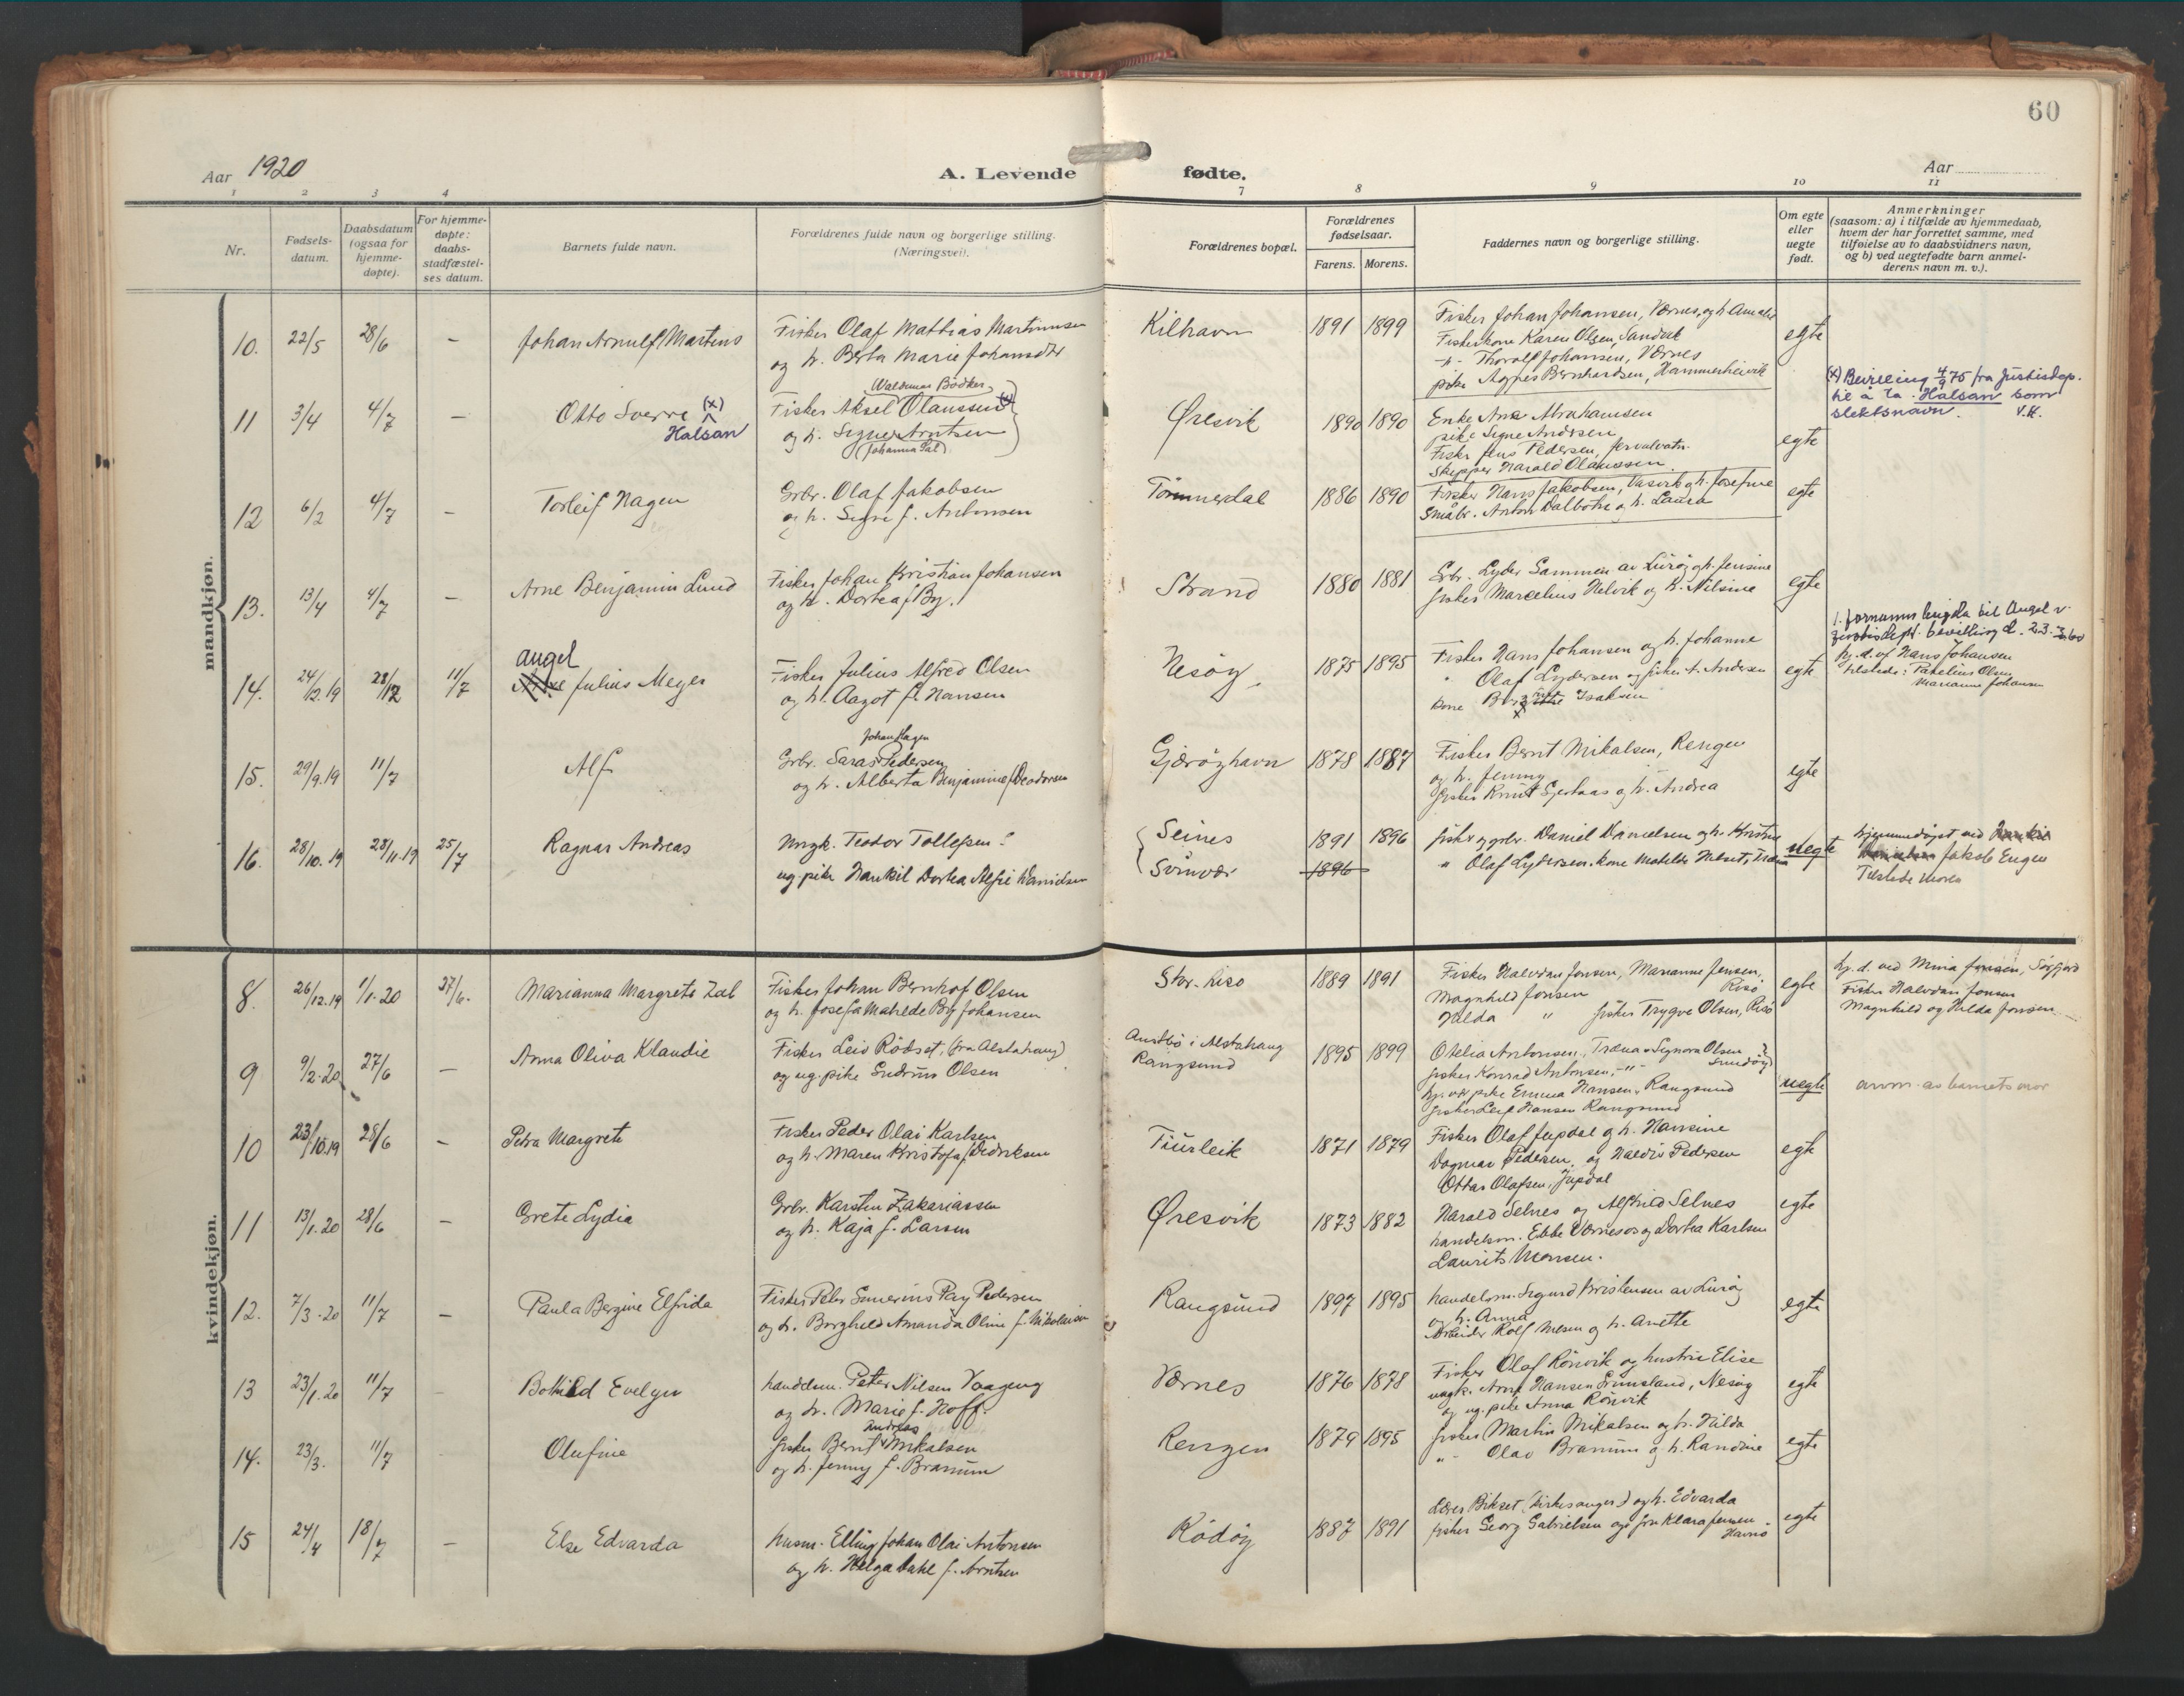 60
Aar 1920
A. Levende fødte.
Aar
1 2 3 4 7 8 9 10 11
Nr.
Fødsels-
datum.
Daabsdatum
(ogsaa for
hjemme-
døpte).
For hjemme-
døpte:
daabs-
stadfæstel-
ses datum.
Barnets fulde navn.
Forældrenes fulde navn og borgerlige stilling.
(Næringsvei).
Forældrenes bopæl.
Forældrenes
fødselsaar.
Farens. Morens.
Faddernes navn og borgerlige stilling.
Om egte
eller
uegte
født.
Anmerkninger
(saasom: a) i tilfælde av hjemmedaab,
hvem der har forrettet samme, med
tilføielse av to daabsvidners navn,
og b) ved uegtefødte barn anmel-
derens navn m. v.).
mandkjøn.
10. 22/5 28/6 –
Johan Arnulf Martens
Fisker Olaf Mathias Martinusen
og h. Berta Marie Johansdtr
Kilhavn 1891 1899
Fisker Johan Johansen, Værnes, og h. Amalie
Fiskerkone Karen Olsen, Sandvik
-"- Thoralf Johansen, Værnes
pike Agnes Bernhardsen, Hammerheivik
egte
11 3/4 4/7 –
Otto Sverre (x)
Halsan
Waldemar Bödker
Fisker Aksel Olaussen (x)
og h. Signe Arntsen
(Johanna Pal)
Øresvik 1890 1890
Enke Ane Abrahamsen
pike Signe Andersen
Fisker Jens Pedersen,
Skipper Harald Olaussen
egte
(x) Bevilling 4/9 75 fra Justisdep.
til å ta Halsan som
slektsnavn. V.K.
12 6/2 4/7 –
Torleif Hagen
Grbr. Olaf Jakobsen
og h. Signe f. Antonsen
Tömmerdal 1886 1890
Fisker Hans Jakobsen, og h. Josefine
Småbr. Anton Dalbotn og h. Laura
egte
13. 13/4 4/7 –
Arne Benjamin Lund
Fisker Johan Kristian Johansen
og h. Dortea f. By.
Strand 1880 1881
Grbr. Lyder Sammen av Luröy og h. Jensine
fisker Marcelius Helvik og h. Nilsine
egte
14. 24/12.19 28/12 11/7
Angel
Julius Meyer
Fisker Julius Alfred Olsen
og h. Aagot f. Hansen
Nesöy. 1875 1895
Fisker Hans Johansen og h. Johanne
" Olaf Lydersen og fisker A. Andersen
kone Isaksen
egte
1. fornavns
justisdept. bevilling d. 23.
hj. d. af Hans Johansen
tilstede: Olsen
Marianne Johansen
15. 29/9.19 11/7
Alf
Johan Hagen
Grbr. Saras Pedersen
og h. Alberta Benjamine f. Deodorsen
Gjæröyhavn 1878 1887
Fisker Bernt Mikalsen, Rengen
og h. Jenny
fisker Knut og h. Andrea
egte
16. 28/10.19 28/11.19 25/7
Ragnar Andreas
Ungk. Teodor Tollefsen
ug. pike Dortea Alfie Danielsen
Seines
1891 1896
1896
fisker og grbr. Daniel Danielsen og h. Kristine
" Olaf Lydersen, kone Matelde
uegte
hjemmedöpt ved
Jakob Eugen
Tilstede Moren
kvindekjøn.
8. 26/12.19 1/1.20 27/6.
Marianna Margrete Zal
Fisker Johan Bernhof Olsen
og h. Josefa Matelde By Johansen
Stor. Risö 1889 1891
Fisker Halvdan Jensen, Marianne Jensen,
Risö
Magnhild Jonsen
Hilda " fisker Trygve Olsen, Risö
egte
hj. d. ved Mina Jensen, Sörfjord
Fisker Halvdan Jonsen
Magnhild og Hilda Jonsen
9 9/2.20 27/6 –
Anna Oliva Klaudie
Fisker Leif Rödset, (fra Alstahaug)
og ug. pike Gudrun Olsen
Austbö i Alstahaug
Rangsund
1895 1899
Otelia Antonsen, Træna Signora Olsen
fisker Konrad Antonsen, -"-
pike Emma Hansen, Rangsund
fisker Leif Hansen Rangsund
uegte
anm. av barnets mor
10 23/10.19 28/6 –
Petra Margrete
Fisker Peder Olai Karlsen
og h. Maren Kristofa f. Didriksen
Tiurleik 1871 1879
Fisker Olaf Jupdal og h. Hansine
Dagmar Pedersen og Haldis Pedersen
Ottar Olafsen, Jupdal
egte
11 13/1.20 28/6 –
Grete Lydia
Grbr. Karsten Zakariassen
og h. Kaja f. Larsen
Øresvik 1873 1882
Harald Selnes og Alfhild Selnes
handelsm. Ebbe Værnesos og Dortea Karlsen
Laurits Monsen.
egte
12. 7/3.20 11/7 –
Paula Bergine Elfrida
Fisker Peder Severins Ray Pedersen
og h. Borghild Amanda Oline f. Nikolaisen
Rangsund 1897 1895
handelsm. Sigurd Kristensen av Luröy
og h. Anna
Arbeider Rolf Nilsen og h. Anette
egte
13 23/1.20 11/7 –
Bothild Evelyn
handelsm. Peter Nilsen Vaageng
og h. Marie f. Hoff.
Værnes 1876 1878
Fisker Olaf Rönvik og hustru Elise
ungk. Arne Hansen Grönsland, Nesöy
og ug. pike Anna Rönvik
egte
14. 23/3. 11/7
Olufine
Andreas
fisker Bernt Mikalsen
og h. Jenny f. Brannum
Rengen 1879 1895
fisker Martin Mikalsen og h. Hilda
-"- Olav Brannum og h. Randine
egte
15 24/4 18/7 –
Else Edvarda
husm. Elling Johan Olai Antonsen
og h. Helga Dahl f. Arntsen
Rödöy 1887 1891
Lærer Bikset (kirkesanger) og h. Edvarda
fisker Georg Gabrielsen og fru Klara Jensen
Havnö
egte